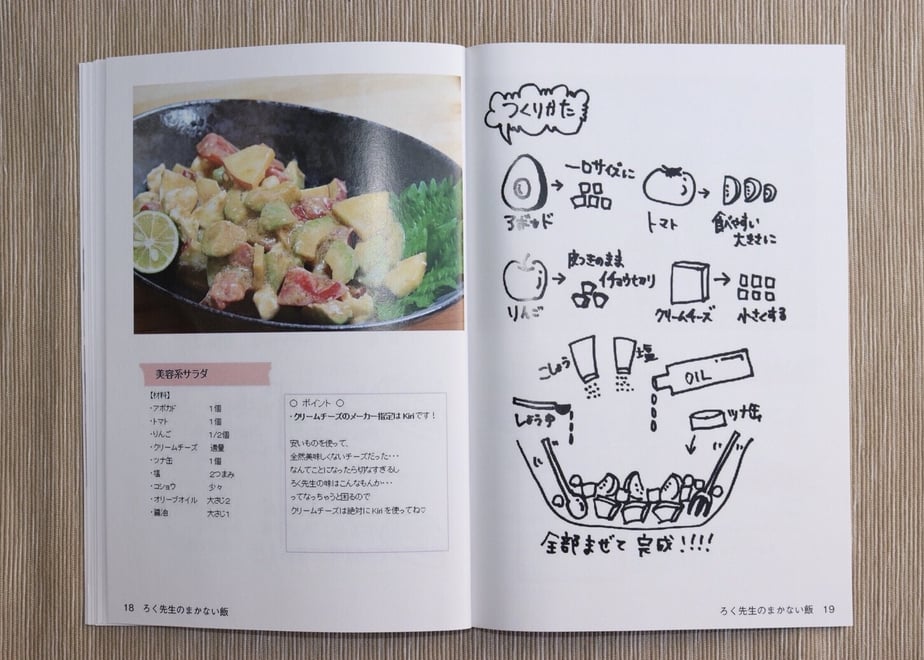 美容系サラダ
【材料】
・アボカド 1個
・トマト 1個
・りんご 1/2個
・クリームチーズ 適量
・ツナ缶 1個
・塩 2つまみ
・コショウ 少々
・オリーブオイル 大さじ2
・醤油 大さじ1
○ ポイント ○
・クリームチーズのメーカー指定は Kiri です！
安いものを使って、
全然美味しくないチーズだった・・・
なんてことになったら切なすぎるし
ろく先生の味はこんなもんか・・・
ってなっちゃうと困るので
クリームチーズは絶対に Kiri を使ってね♡
18 ろく先生のまかない飯
つくりかた
アボカド
一口サイズに
トマト
食べやすい
大きさに
りんご
皮つきのまま
イチョウ切り
クリームチーズ
小さくする
こしょう
塩
OIL
しょうゆ
ツナ缶
全部まぜて 完成!!!!
ろく先生のまかない飯 19